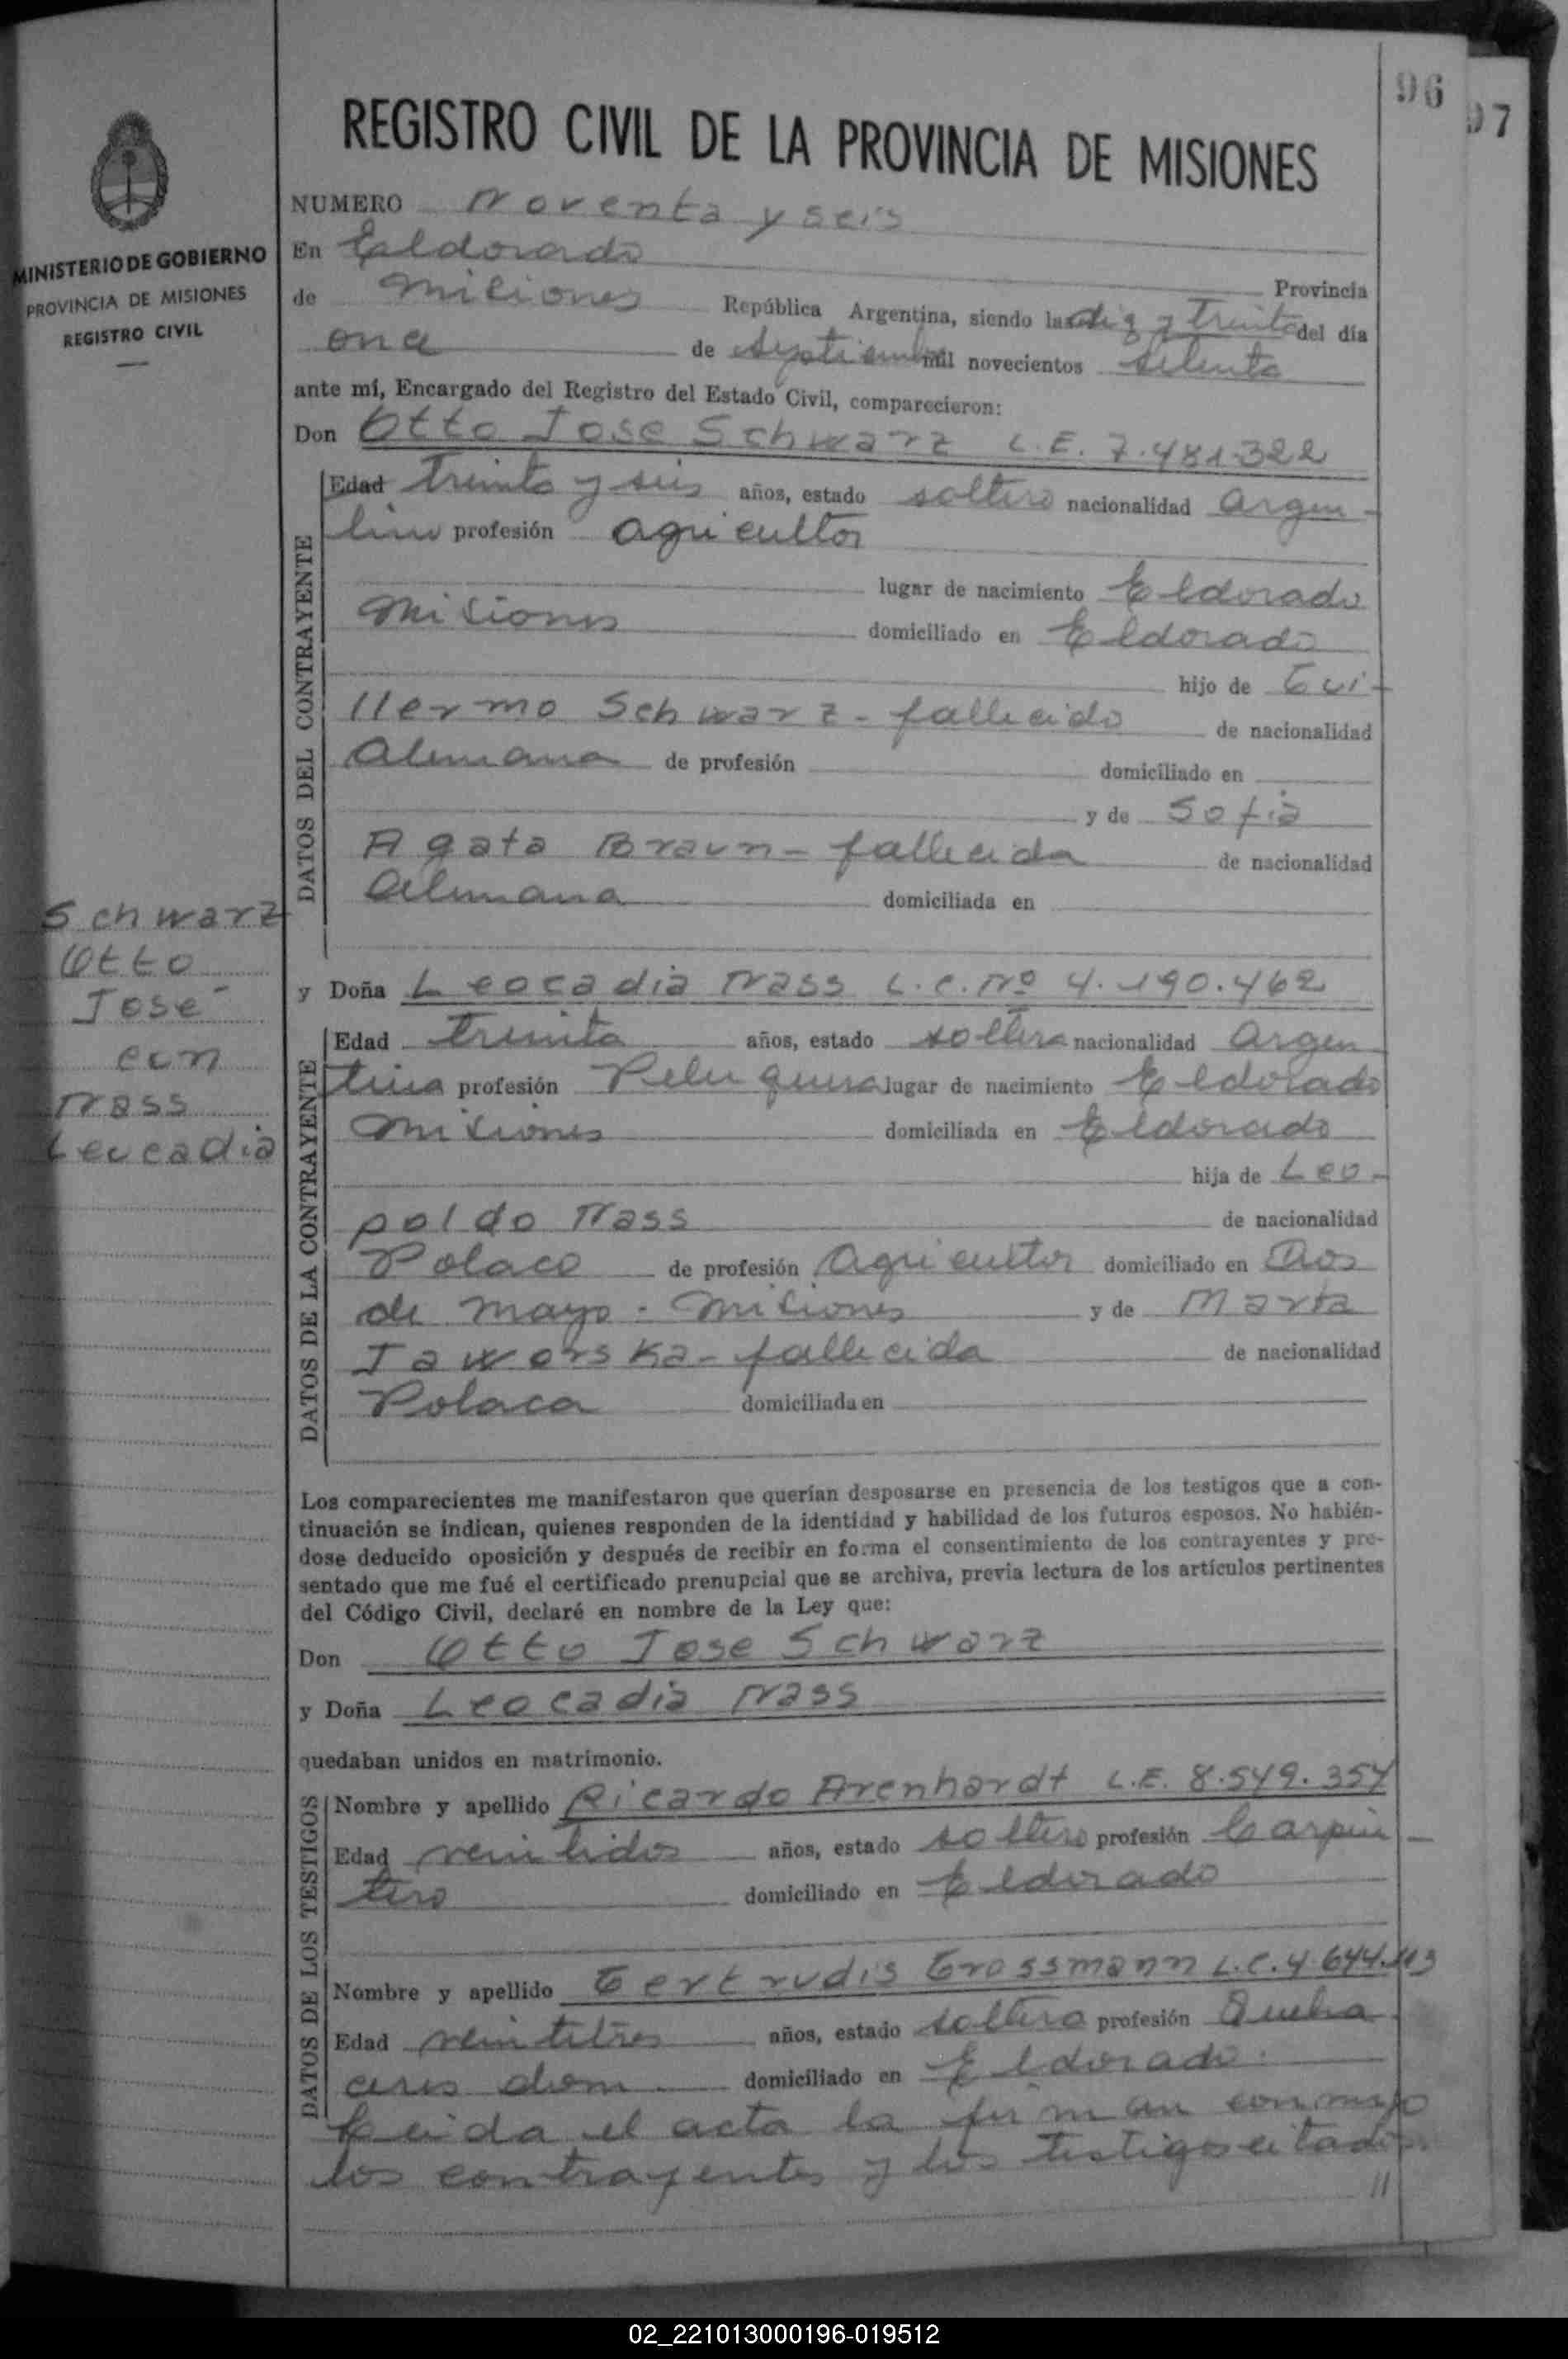 96
97
REGISTRO CIVIL DE LA PROVINCIA DE MISIONES
MINISTERIO DE GOBIERNO
PROVINCIA DE MISIONES
REGISTRO CIVIL
NUMERO Noventa y seis
En Eldorado
Provincia
de Misiones República Argentina, siendo las diez y treinta del día
once de septiembre mil novecientos setenta
ante mí, Encargado del Registro del Estado Civil, comparecieron:
Don Otto Jose Schwarz L.E. 7.481.322
DATOS DEL CONTRAYENTE
Edad treinta y seis años, estado soltero nacionalidad argen-
tino profesión agricultor
lugar de nacimiento Eldorado
Misiones domiciliado en Eldorado
hijo de Gui-
llermo Schwarz - fallecido de nacionalidad
Alemana de profesión domiciliado en
y de Sofia
Agata Braun - fallecida de nacionalidad
Alemana domiciliada en
Schwarz
Otto
José
con
Nass
Leocadia
y Doña Leocadia Nass L.C. Nº 4.190.462
DATOS DE LA CONTRAYENTE
Edad treinta años, estado soltera nacionalidad argen
tina profesión Peluquera lugar de nacimiento Eldorado
Misiones domiciliada en Eldorado
hija de Leo-
poldo Nass de nacionalidad
Polaco de profesión Agricultor domiciliado en Dos
de Mayo - Misiones y de Marta
Jaworska - fallecida de nacionalidad
Polaca domiciliada en
Los comparecientes me manifestaron que querían desposarse en presencia de los testigos que a con-
tinuación se indican, quienes responden de la identidad y habilidad de los futuros esposos. No habién-
dose deducido oposición y después de recibir en forma el consentimiento de los contrayentes y pre-
sentado que me fué el certificado prenupcial que se archiva, previa lectura de los artículos pertinentes
del Código Civil, declaré en nombre de la Ley que:
Don Otto Jose Schwarz
y Doña Leocadia Nass
quedaban unidos en matrimonio.
DATOS DE LOS TESTIGOS
Nombre y apellido Ricardo Arenhardt L.E. 8.549.354
Edad veintidos años, estado soltero profesión Carpin-
tero domiciliado en Eldorado
Nombre y apellido Gertrudis Grossmann L.C. 4.644.113
Edad veintitres años, estado soltera profesión Queha
ceres dom domiciliado en Eldorado.
Leida el acta la firman conmigo
los contrayentes y los testigos citados.
//
02_221013000196-019512